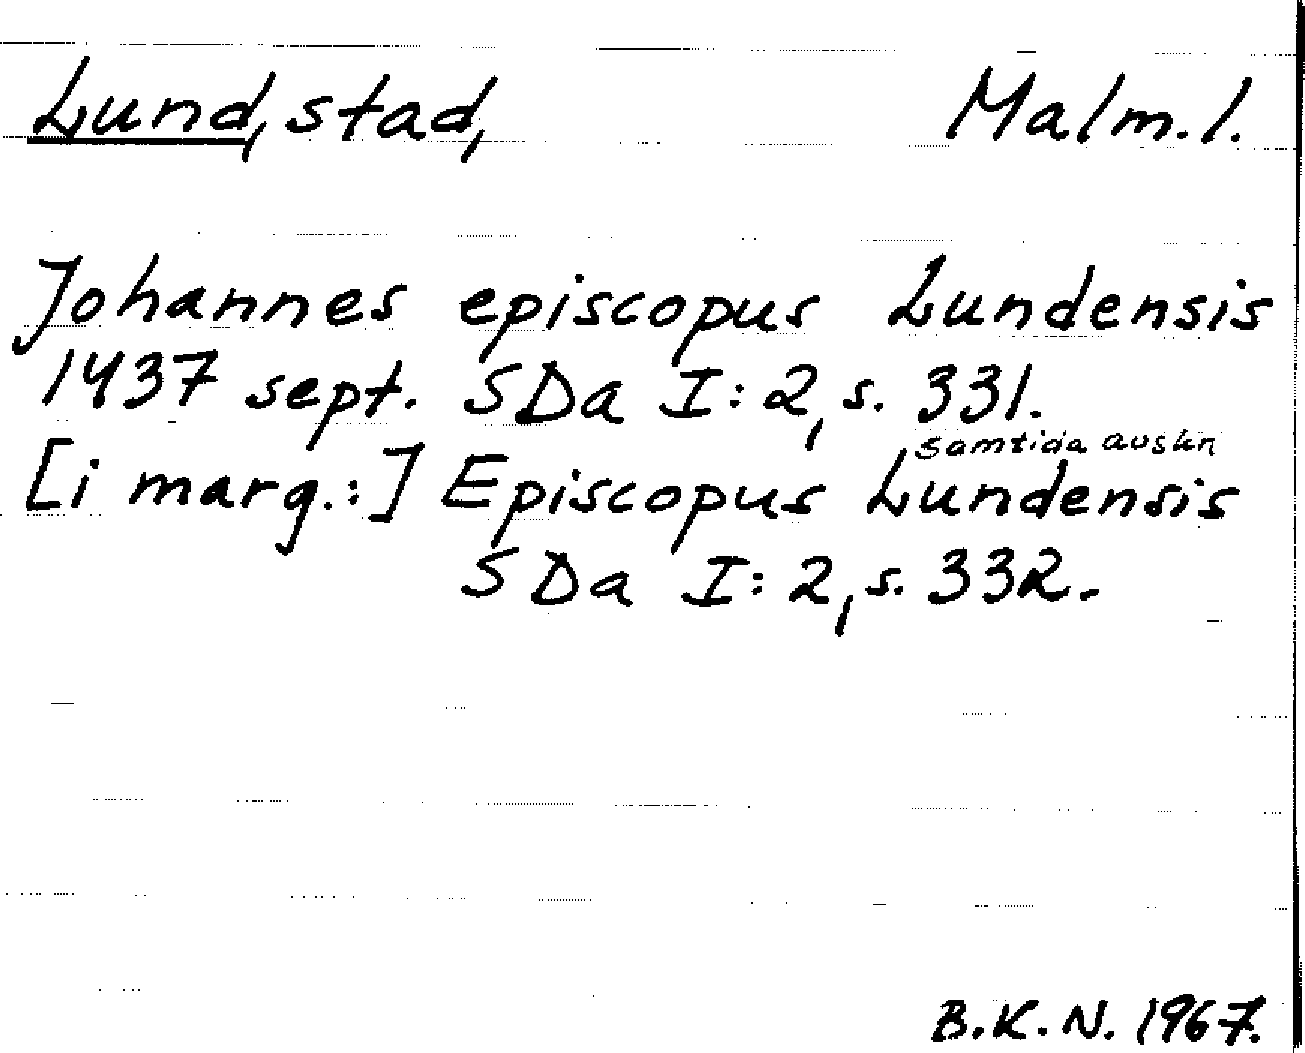 Lund, stad, Malm. l.
Johannes episcopus Lundensis
1437 sept. SDa I:2, s. 331.
samtida avskr
[i marg.:] Episcopus Lundensis
SDa I:2, s. 332.
B.K.N. 1967.